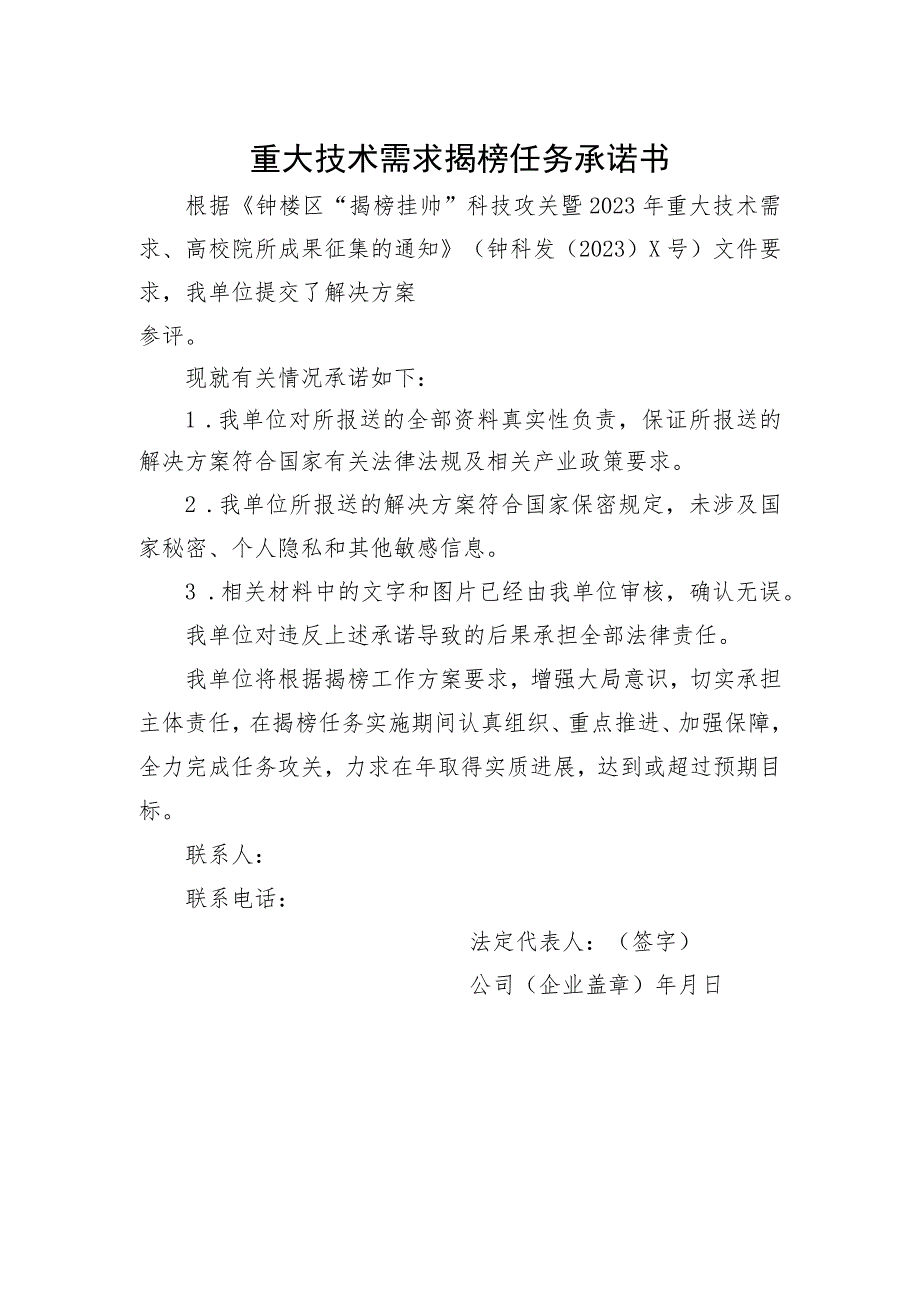 重大技术需求揭榜任务承诺书
根据《钟楼区“揭榜挂帅”科技攻关暨 2023 年重大技术需
求、高校院所成果征集的通知》（钟科发（2023）X 号）文件要
求，我单位提交了解决方案
参评。
现就有关情况承诺如下：
1 .我单位对所报送的全部资料真实性负责，保证所报送的
解决方案符合国家有关法律法规及相关产业政策要求。
2 .我单位所报送的解决方案符合国家保密规定，未涉及国
家秘密、个人隐私和其他敏感信息。
3 .相关材料中的文字和图片已经由我单位审核，确认无误。
我单位对违反上述承诺导致的后果承担全部法律责任。
我单位将根据揭榜工作方案要求，增强大局意识，切实承担
主体责任，在揭榜任务实施期间认真组织、重点推进、加强保障，
全力完成任务攻关，力求在年取得实质进展，达到或超过预期目
标。
联系人：
联系电话：
法定代表人：（签字）
公司（企业盖章）年月日